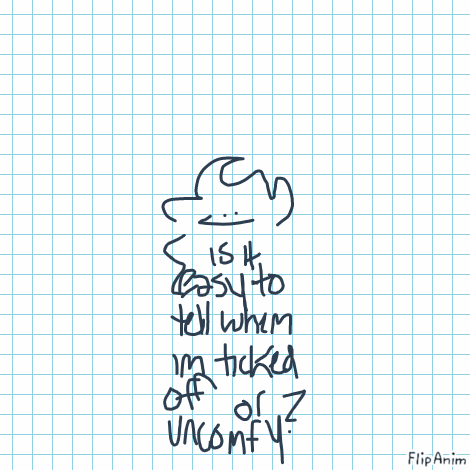 is it
easy to
tell when
im ticked
off or
uncomfy?
FlipAnim